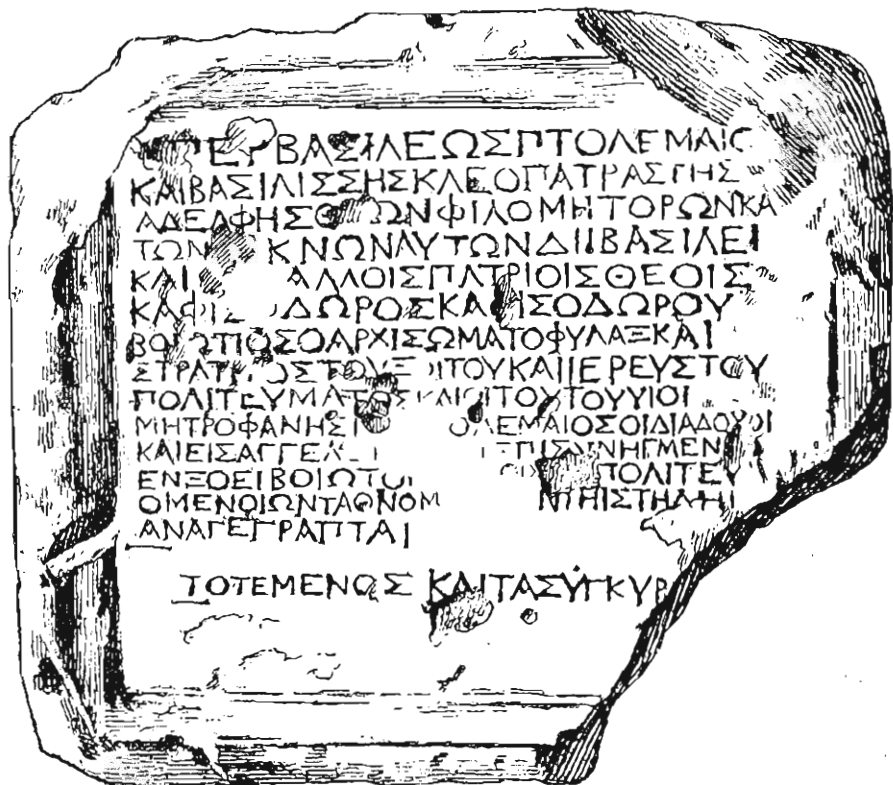 ΠΕΡΒΑΣΙΛΕΩΣΠΤΟΛΕΜΑΙΟ
ΚΑΙΒΑΣΙΛΙΣΣΗΣΚΛΕΟΠΑΤΡΑΣΤΗΣ
ΑΔΕΛΦΗΣΘ ΩΝΦΙΛΟΜΗΤΟΡΩΝΚΑ
ΤΩΝ ΚΝΩΝΑΥΤΩΝΔΙΙΒΑΣΙΛΕΙ
ΚΑΙ ΑΛΛΟΙΣΠΑΤΡΙΟΙΣΘΕΟΙΣ
ΚΑΦΙΣ ΔΩΡΟΣΚΑΦΙΣΟΔΩΡΟΥ
ΒΟΙΩΤΙΟΣΟΑΡΧΙΣΩΜΑΤΟΦΥΛΑΞΚΑΙ
ΣΤΡΑΤΗ ΟΣΤΟΥΞ ΙΤΟΥΚΑΙΙΕΡΕΥΣΤΟΥ
ΠΟΛΙΤΕΥΜΑΤΟΣΚΑΙΟΙΤΟΥΤΟΥΥΙΟΙ
ΜΗΤΡΟΦΑΝΗΣ ΟΛΕΜΑΙΟΣΟΙΔΙΑΔΟΧΟΙ
ΚΑΙΕΙΣΑΓΓΕΛ ΕΠΙΣΥΝΗΓΜΕΝ
ΕΝΞΟΕΙΒΟΙΩΤΟΙ ΠΟΛΙΤΕΥ
ΟΜΕΝΟΙΩΝΤΑΟΝΟΜ ΝΤΗΙΣΤΗΛΗΙ
ΑΝΑΓΕΓΡΑΠΤΑΙ
ΤΟΤΕΜΕΝΟΣ ΚΑΙΤΑΣΥΓΚΥΡ